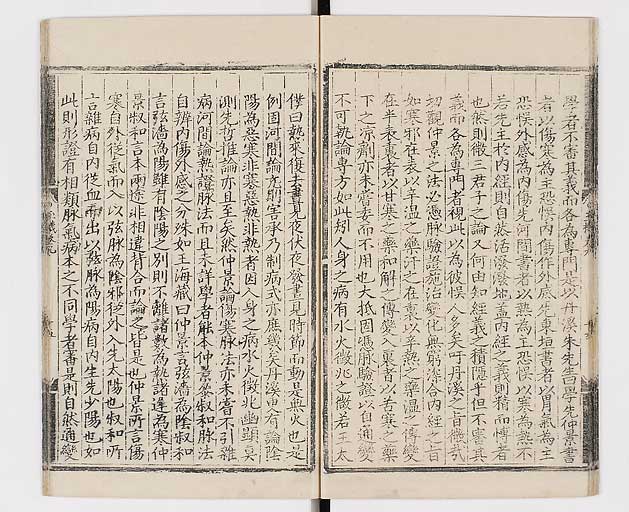 學者不審其義而各為專門是以丹溪朱先生曰學先仲景書
者以傷寒為主恐悞內傷作外感先東垣書者以胃氣為主
恐悞外感為內傷先河間書者以熱為主恐悞以寒為熱不
若先主於內經則自然活潑潑地盖內經之義則精而愽者
也然則微三君子之論又何由知經義之積隱乎但不審其
義而各為專門者視此以為彼悞人多矣吁丹溪之旨微哉
切觀仲景之法必憑脉驗證施治變化無窮深合內經之旨
如寒邪在表以辛溫之劑汗之在裏以辛熱之藥溫之傳變
在半表裏者以甘寒之藥和解之傳變入裏者以苦寒之藥
下之涼劑亦未嘗委而不用也大抵因憑脉驗證以自通變
不可執論專方如此矧人身之病有水火微兆之微若王太
僕曰熱來復去晝見夜伏夜發晝見時節而動是無火也是
例固河間論亢則害承乃制病式亦庶幾矣丹溪又有論陰
陽為惡寒非寒惡熱非熱者因人身之病水火微兆幽顯莫
測先哲推論亦且至矣然仲景論傷寒脉法亦未嘗不引雜
病河間論熱證脉法而且未詳學者能本仲景叅叔和脉法
自辨內傷外感之分殊如王海藏曰仲景言弦濇為陰叔和
言弦濇為陽雖有陰陽之別則不離諸數為熱諸遲為寒仲
景叔和言本兩途非相違背合而論之皆是也仲景所言傷
寒自外從氣而入以弦脉為陰邪從外入先太陽也叔和所
言雜病自內從血而出以弦脉為陽病自內生先少陽也如
此則形證有相類脉氣病本之不同學者審是則自然通變